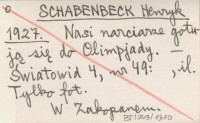 SCHABENBECK Henryk.
1927. Nasi narciarze gotu-
ją się do Olimpjady. —
Światowid 4, nr 49: , il.
Tylko fot.
W Zakopanem.